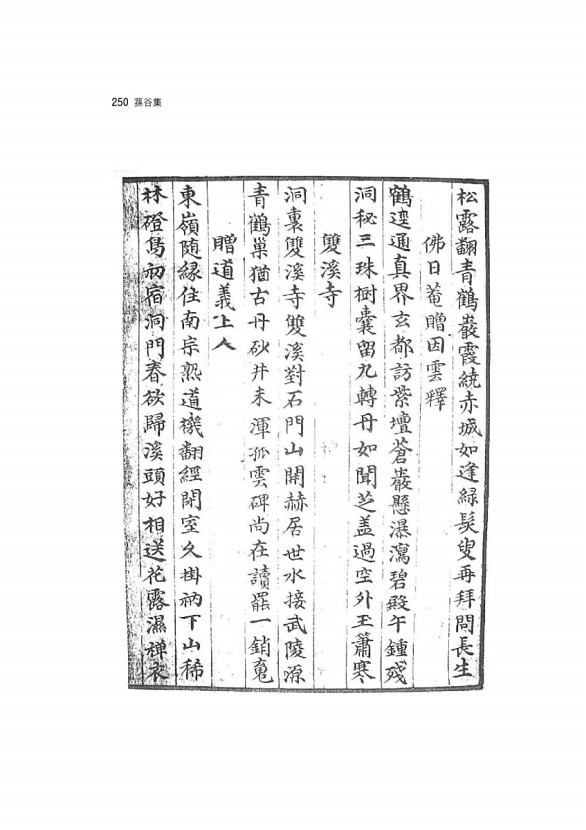 250 蓀谷集
松露翻青鶴巖霞繞赤城如逢綠髮叟再拜問長生
佛日菴贈因雲釋
鶴邊通眞界玄都訪紫壇蒼巖懸瀑瀉碧殿午鍾殘
洞秘三珠樹囊留九轉丹如聞芝盖過空外玉簫寒
雙溪寺
洞裏雙溪寺雙溪對石門山開赫居世水接武陵源
青鶴巢猶古丹砂井未渾孤雲碑尚在讀罷一銷䰟
贈道義上人
東嶺隨緣住南宗熟道機翻經閉室久掛衲下山稀
林磴鳥初宿洞門春欲歸溪頭好相送花露濕禪衣